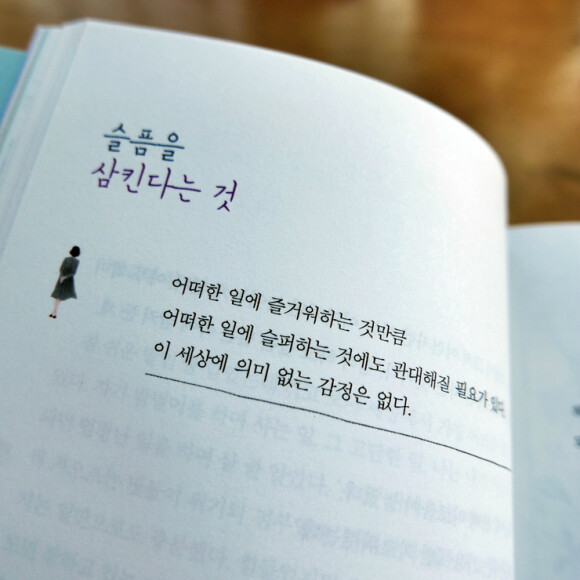 슬픔을
삼킨다는 것
어떠한 일에 즐거워하는 것만큼
어떠한 일에 슬퍼하는 것에도 관대해질 필요가 있다.
이 세상에 의미 없는 감정은 없다.